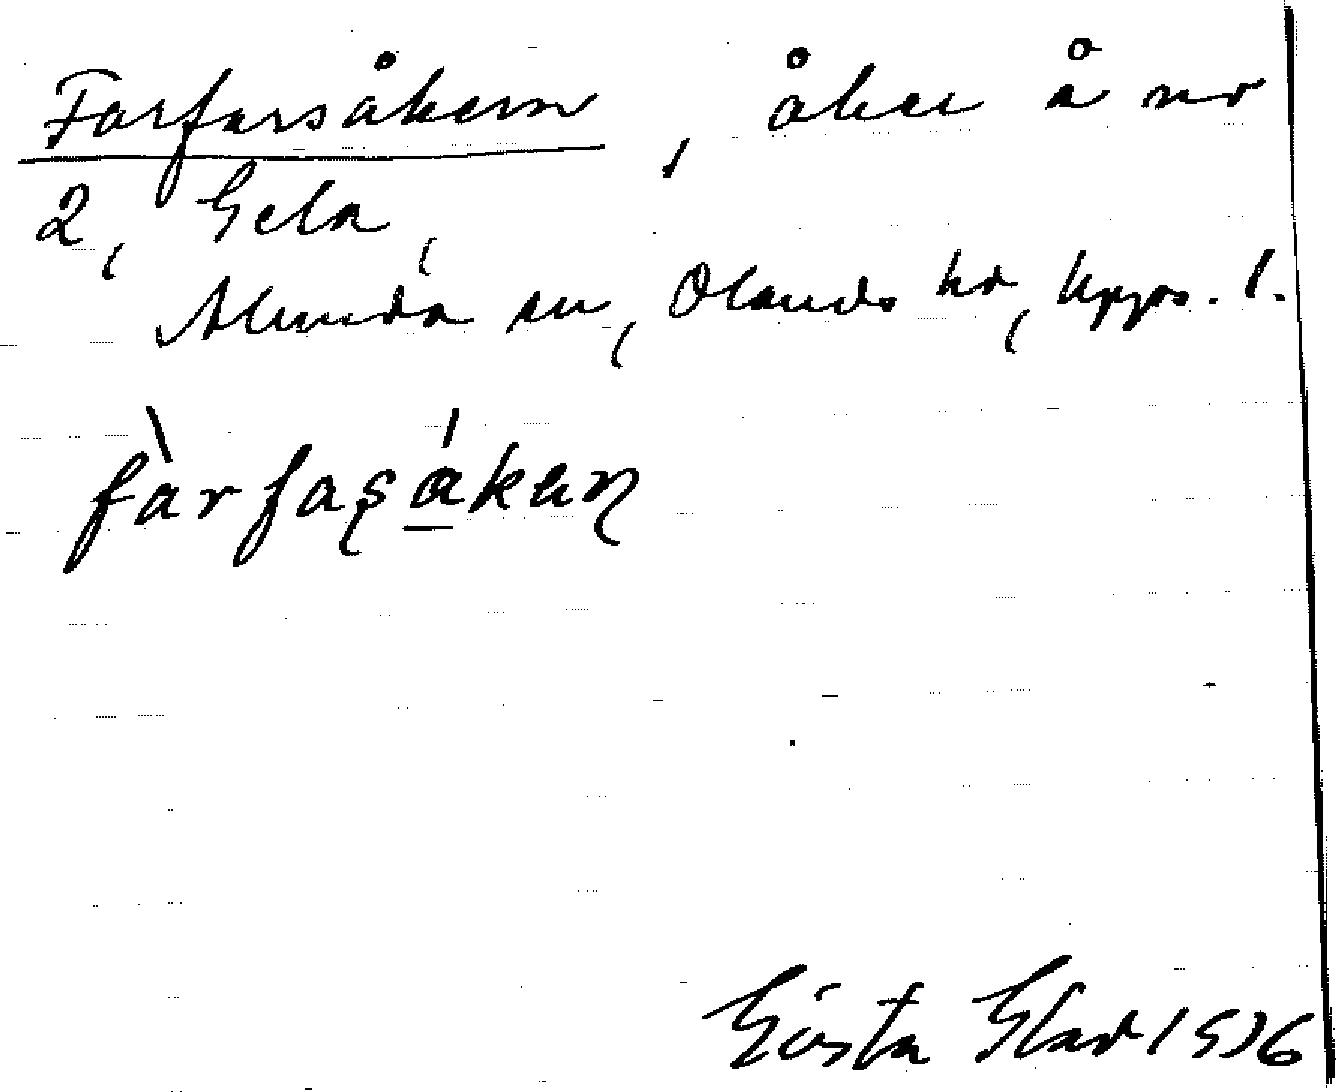 Farfarsåkern, åker å nr
2, Gela,
Alunda sn, Olands hd, Upps. l.
fàrfaʂákaɳ
Gösta Glad 1936